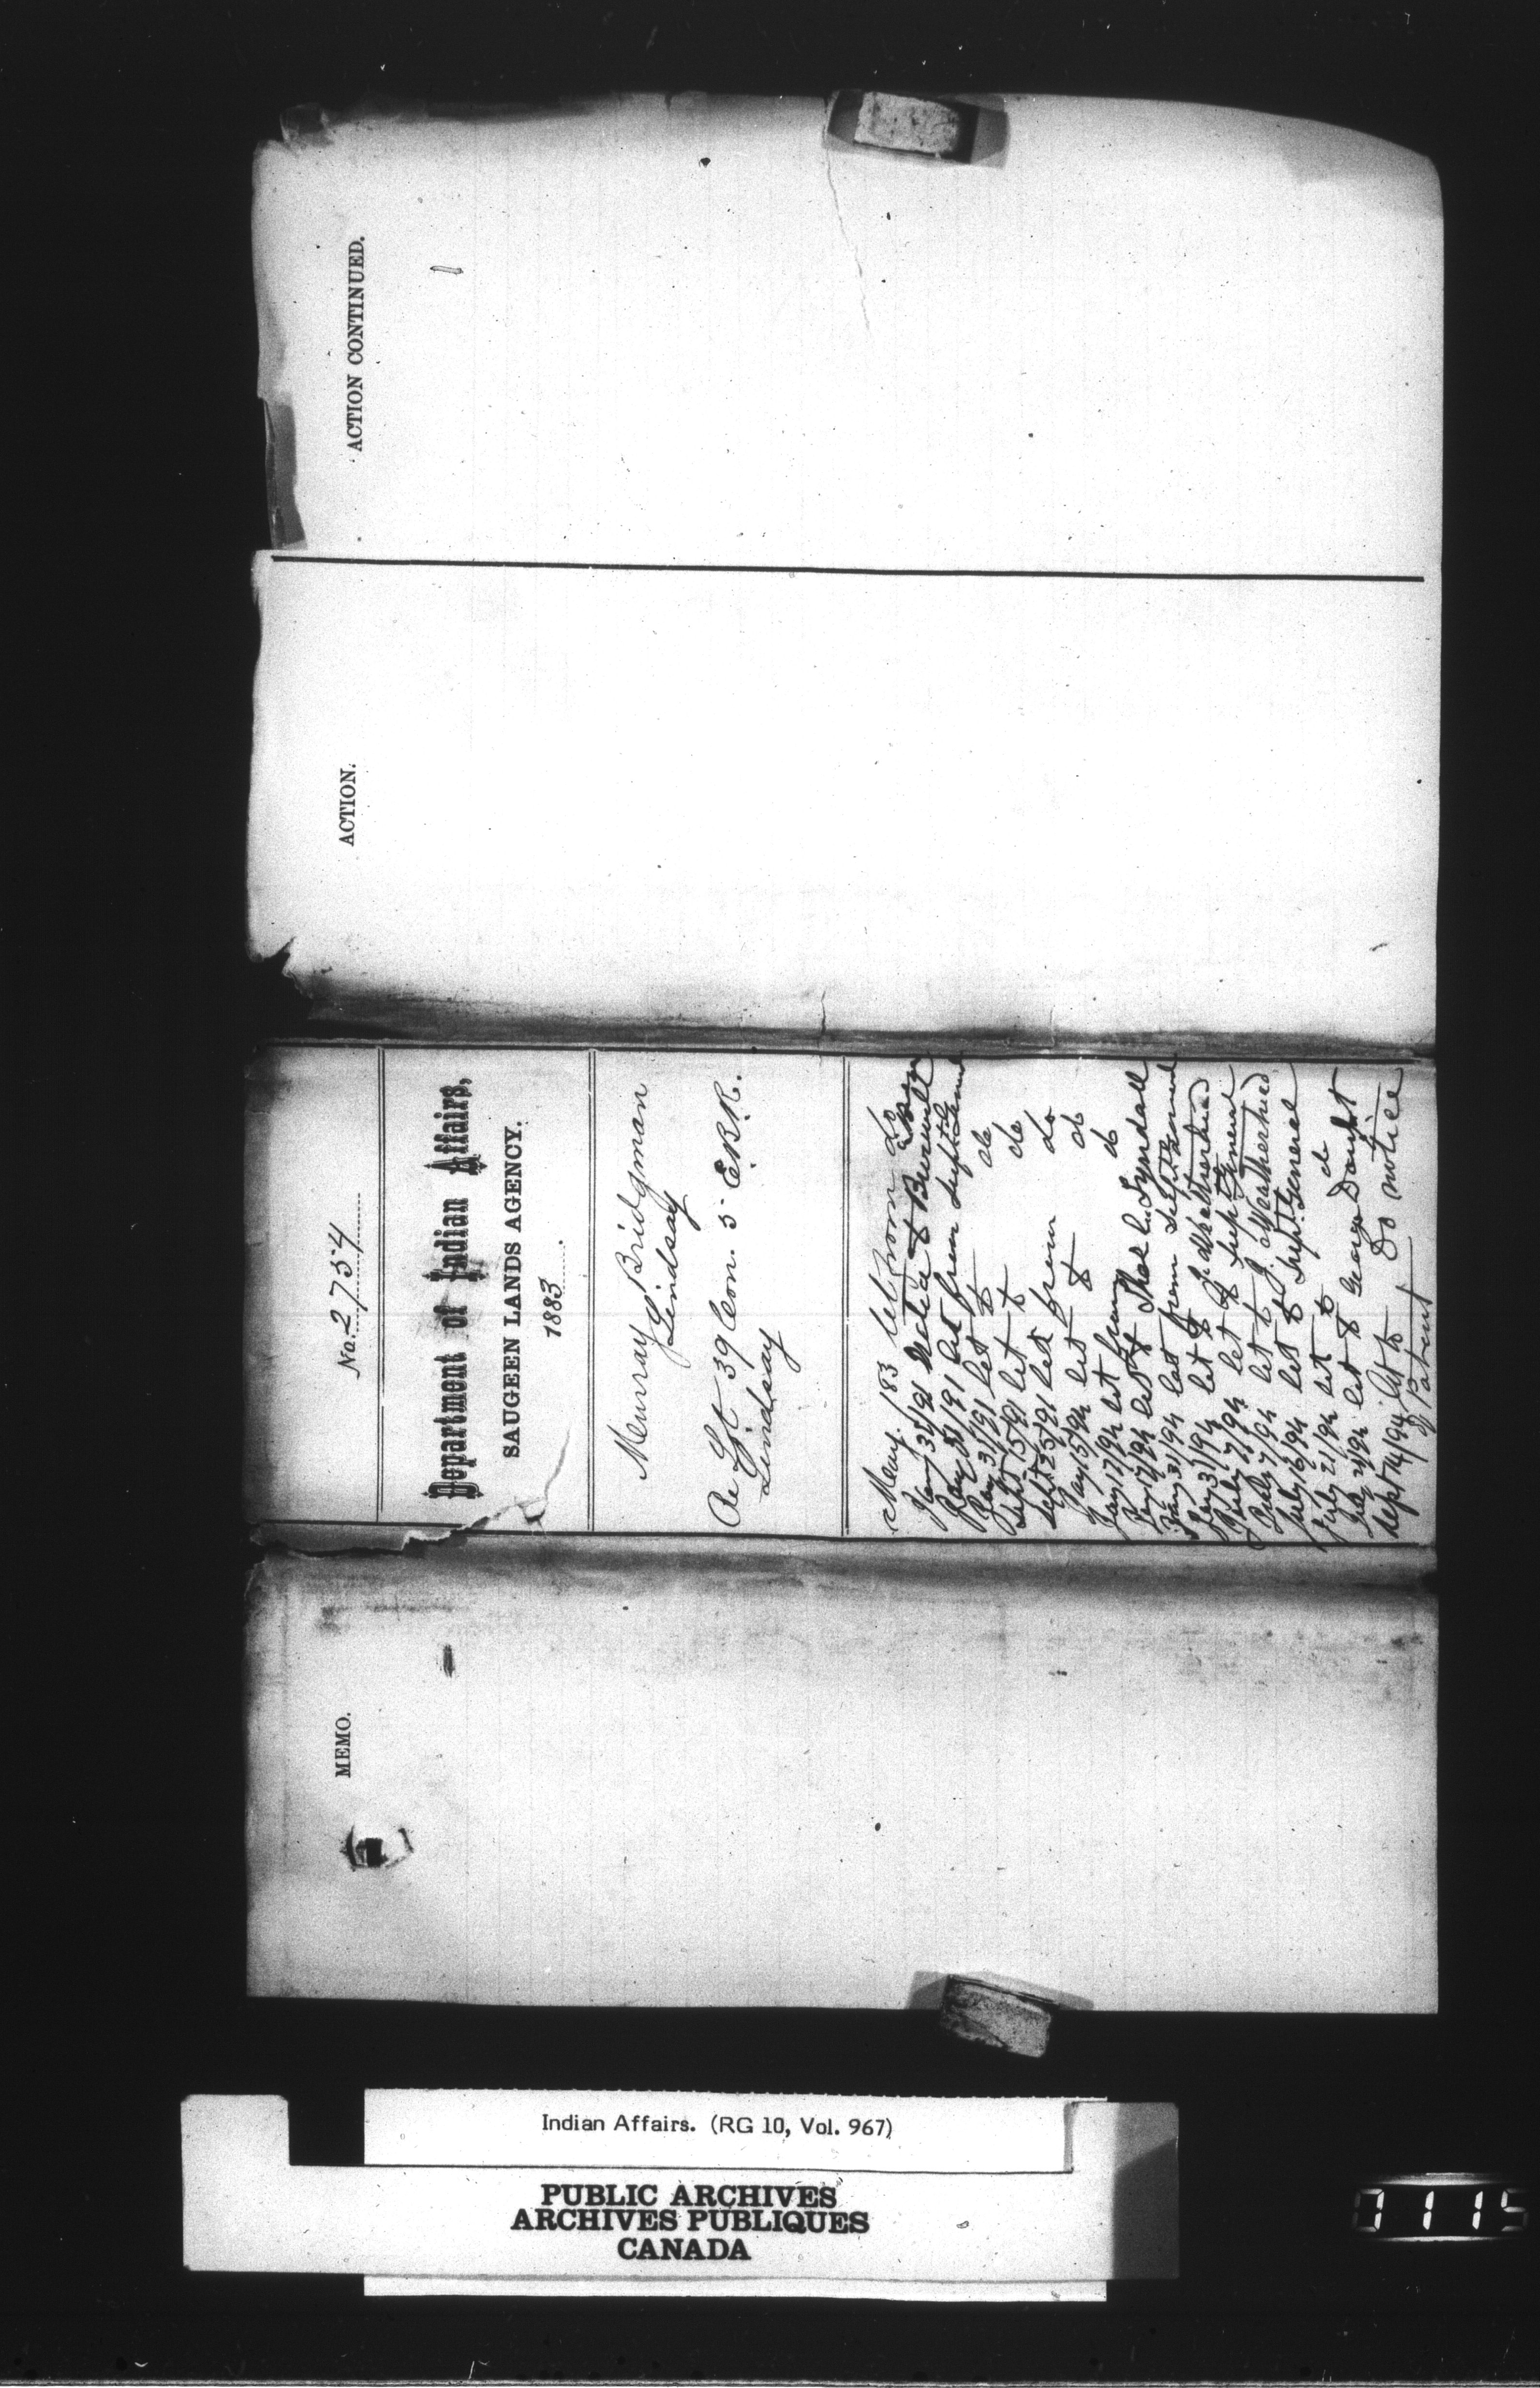 ACTION CONTINUED.
ACTION.
No. 2754
Department of Indian Affairs,
SAUGEEN LANDS AGENCY.
1883.
Murray Bridgman
Lindsay
Re Lot 39 Con. 5 E.B.R.
Lindsay
May 183 let from do
Jany 31/91 Notice
Jany 31/91 let from Supt Genl
Jany 31/91 let to do
Sept 15/91 let to do
Sept 25/91 let from do
Jany 15/94 let to do
Jany 17/94 let from do
Jany 17/94 let to Thos Lyndall
Jany 31/94 let from Supt General
Jany 31/94 let to J. Weatherhead
July 7/94 let to Supt General
July 7/94 let to J. Weatherhead
July 16/94 let to Supt General
July 21/94 let to d
July 21/94 let to George Douglt
Sept 14/94 let to Do notice
of Patent
MEMO.
Indian Affairs. (RG 10, Vol. 967)
PUBLIC ARCHIVES
ARCHIVES PUBLIQUES
CANADA
0115